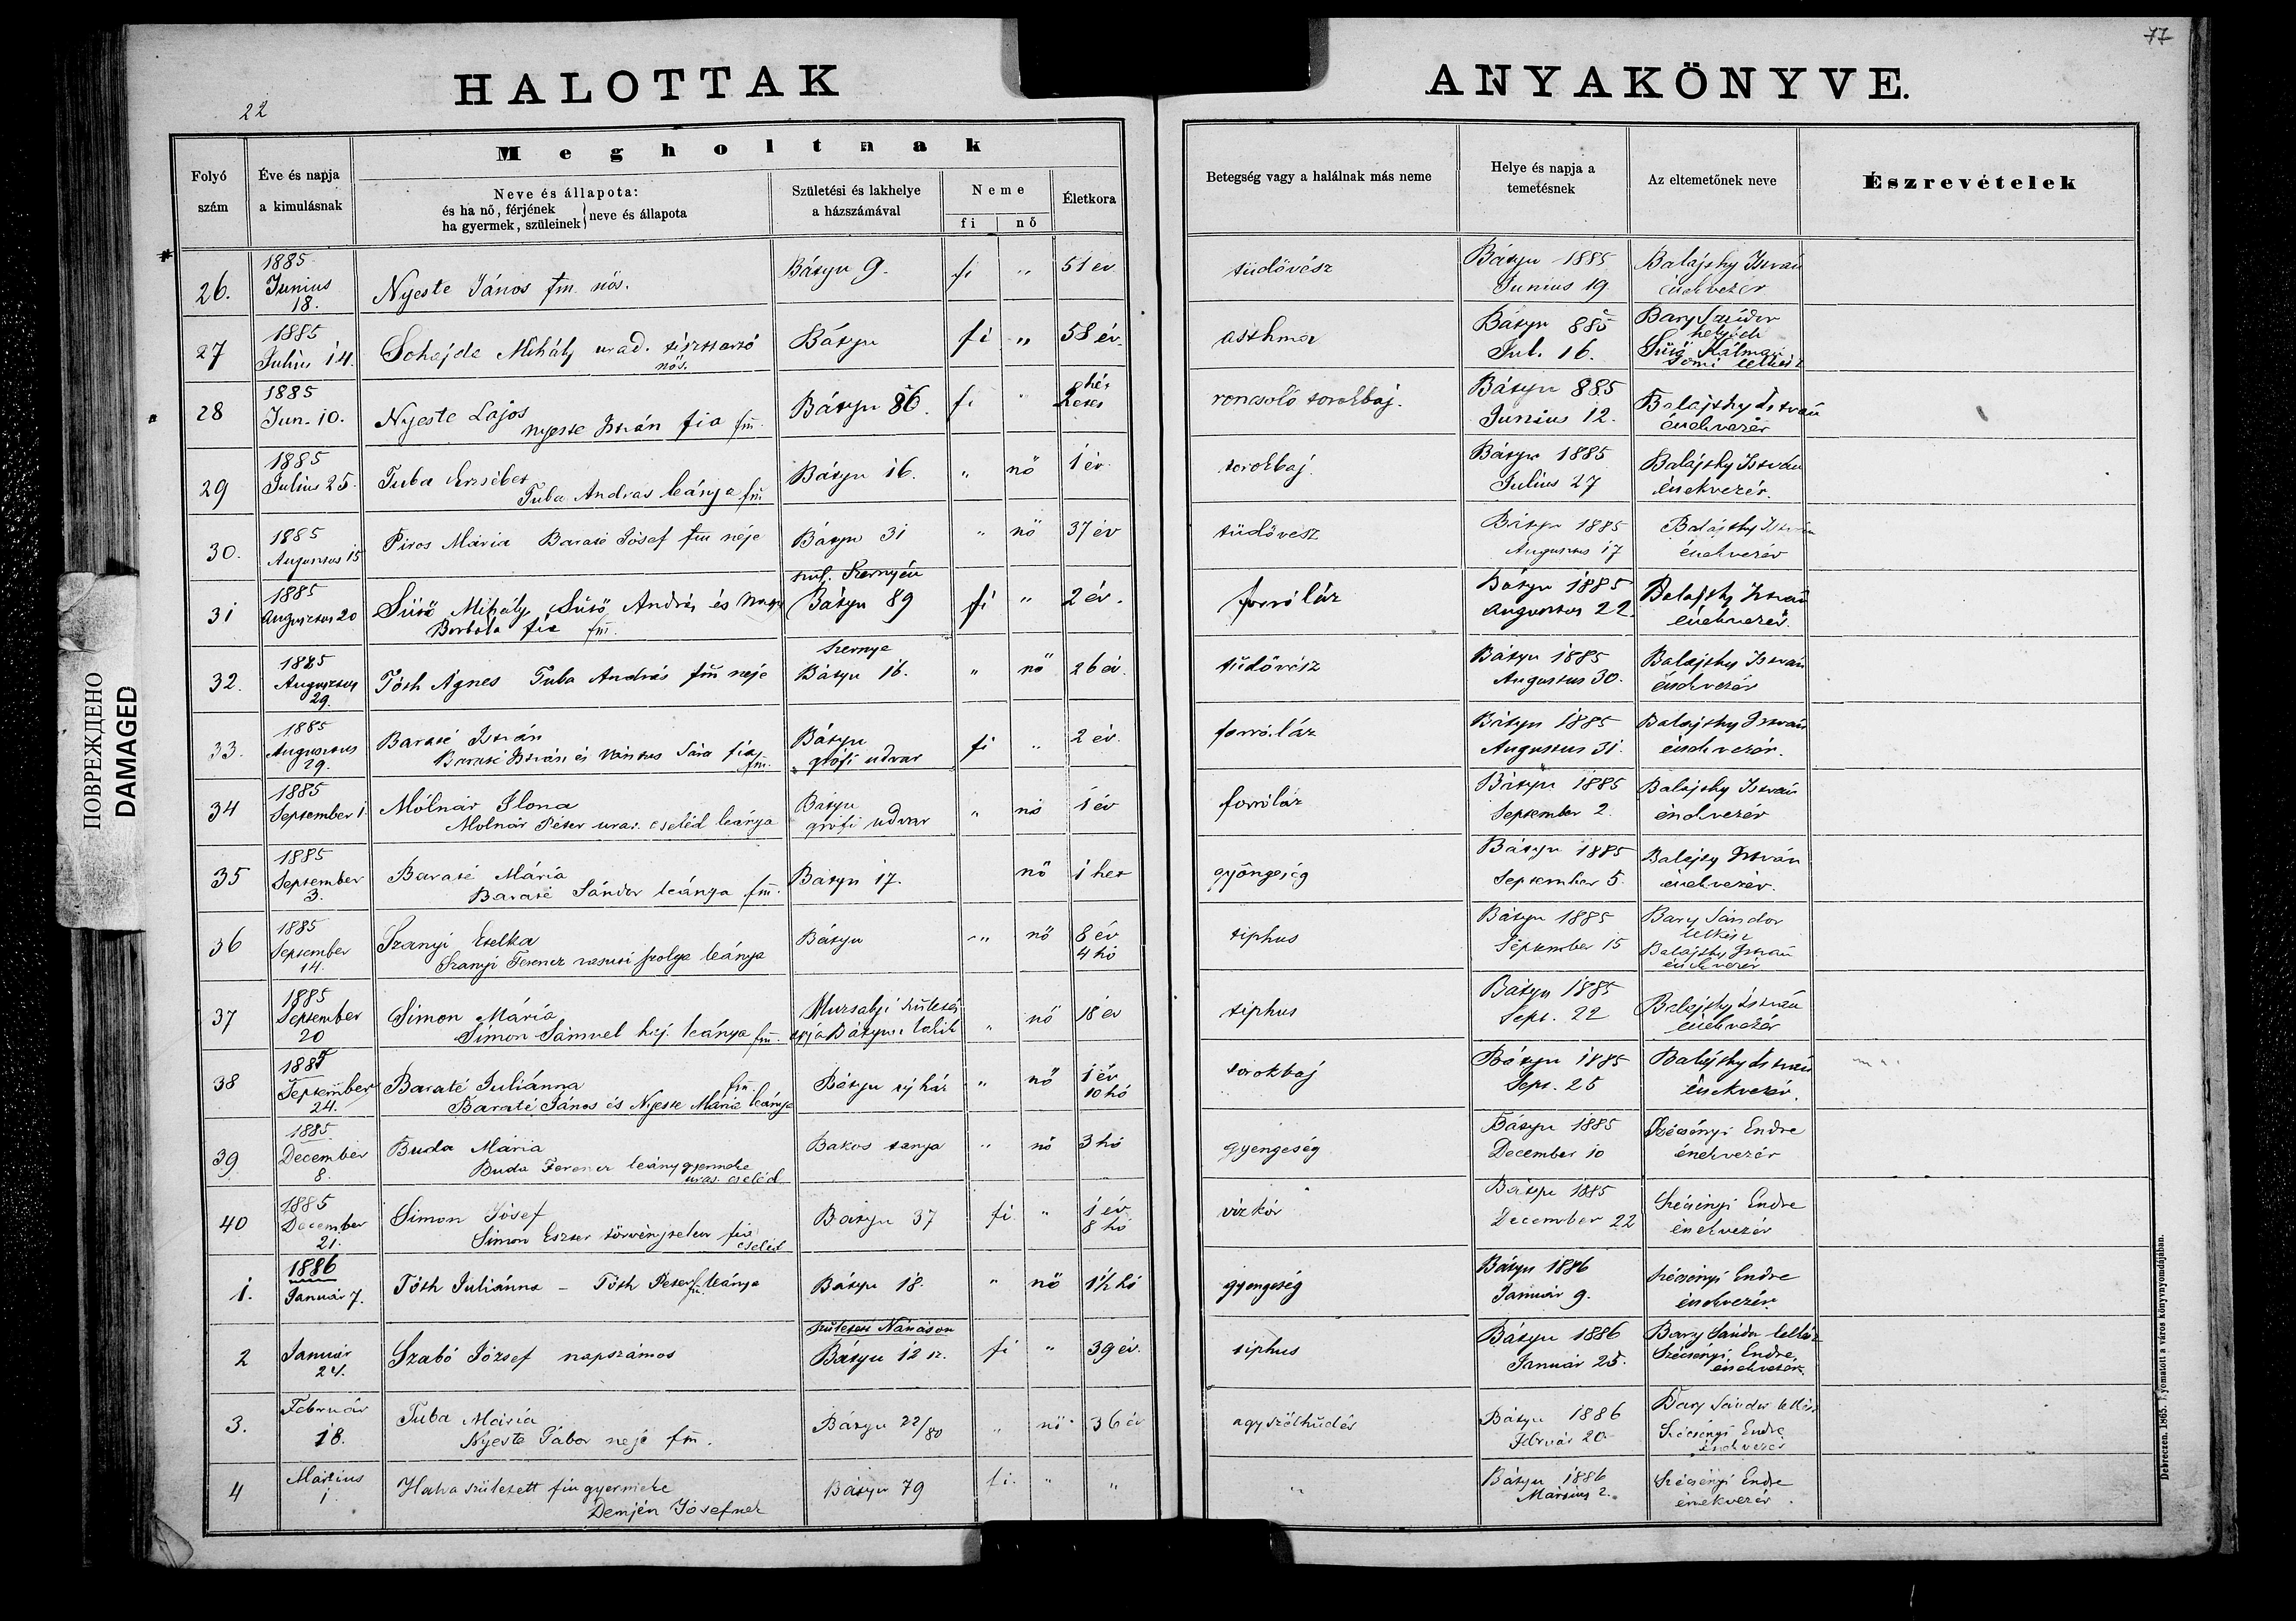 77
22
HALOTTAK ANYAKÖNYVE.
Folyó szám
Éve és napja a kimulásnak
Megholtnak
Neve és állapota:
és ha nő, férjének
ha gyermek, szüleinek
neve és állapota
Születési és lakhelye a házszámával
Neme
fi
nő
Életkora
Betegség vagy a halálnak más neme
Helye és napja a temetésnek
Az eltemetőnek neve
Észrevételek
26. 1885 Junius 18. Nyeste János fm. nős. Bátyu 9. fi " 51 év tüdővész Bátyu 1885 Junius 19 Balajthy István énekvezér
27 1885 Julius 14. Sohajda Mihály urad. tiszttartó nős. Bátyu fi " 58 év. asthma Bátyu 885 Jul. 16. Bary Sándor helybeli Sütő Kálmán lelkész
28 1885 Jun. 10. Nyeste Lajos Nyeste István fia fm. Bátyu 86. fi " 2 roncsoló torokbaj. Bátyu 885 Junius 12. Balajthy István énekvezér
29 1885 Julius 25. Tuba Erzsébet Tuba András leánya fm Bátyu 16. " nő 1 év. torokbaj. Bátyu 1885 Julius 27 Balajthy István énekvezér.
30. 1885 Augustus 15 Piros Mária Baraté Jósef fm neje Bátyu 31 " nő 37 év tüdővész Bátyu 1885 Augustus 17 Balajthy István énekvezér
31 1885 Augusztus 20 Sütő Mihály Sütő András és Nagy Borbála fia fm. szül. Szernyén Bátyu 89 fi " 2 év. forróláz Bátyu 1885 Augustus 22. Balajthy István énekvezér.
32. 1885 Augusztus 29. Tóth Ágnes Tuba András fm neje Szernye Bátyu 16. " nő 26 év. tüdővész Bátyu 1885 Augustus 30. Balajthy István énekvezér
33. 1885 Augustus 29. Baraté István Baraté István és Vántus Sára fia fm. Bátyu grófi udvar fi " 2 év. forróláz Bátyu 1885 Augustus 31. Balajthy István énekvezér.
34 1885 September 1. Mólnár Ilona Molnár Péter uras. cseléd leánya Bátyu grófi udvar " nő 1 év forróláz Bátyu 1885 September 2. Balajthy István énekvezér
35 1885 September 3. Baraté Mária Baraté Sándor leánya fm. Batyu 17. nő 1 het gyöngeség Bátyu 1885 September 5. Balajty István énekvezér.
36 1885 September 14. Szanyi Etelka Szanyi Ferencz vasuti szolga leánya Bátyu " nő 8 év 4 hó tiphus Bátyu 1885 September 15 Bary Sándor lelkész Balajthy István énekvezér
37 1885 September 20 Simon Mária Simon Sámuel leánya fm. Munkácsi " nő 18 év tiphus Bátyu 1885 Sept. 22 Balajthy István énekvezér
38 1885 September 24. Baraté Juliánna fm. Baraté János és Nyeste Mária leánya Bátyu uj ház " nő 1 év 10 hó torokbaj Bátyu 1885 Sept. 25 Balajthy István énekvezér.
39 1885 December 8. Buda Mária Buda Ferencz leánygyermeke uras. cseléd Bakos tanya " nő 3 hó gyengeség Bátyu 1885 December 10 Szécsényi Endre énekvezér
40 1885 December 21. Simon Jósef Simon Eszter törvénytelen fia cseléd Bátyu 37 fi " 1 év 8 hó vizkór Bátyu 1885 December 22 Szécsényi Endre énekvezér
1. 1886 Január 7. Tóth Juliánna – Tóth Péter fm. leánya Bátyu 18. " nő 1½ hó gyengeség Bátyu 1886 Január 9. Szécsényi Endre énekvezér.
2 Január 24. Szabó József napszámos született Nánáson Bátyu 12 sz. fi " 39 év. tiphus Bátyu 1886 Január 25. Bary Sándor lelkész Szécsényi Endre énekvezér.
3. Február 18. Tuba Mária Nyeste Gábor neje fm. Bátyu 22/80 " nő 36 év agyszélhüdés Bátyu 1886 Február 20. Bary Sándor lelkész Szécsényi Endre énekvezér
4 Mártius 1. Halva született fiu gyermeke Demjén Jósefnek Bátyu 79 fi. " " " Bátyu 1886 Mártius 2. Szécsényi Endre énekvezér.
ПОВРЕЖДЕНО
DAMAGED
Debreczen, 1865. Nyomatott a város könyvnyomdájában.